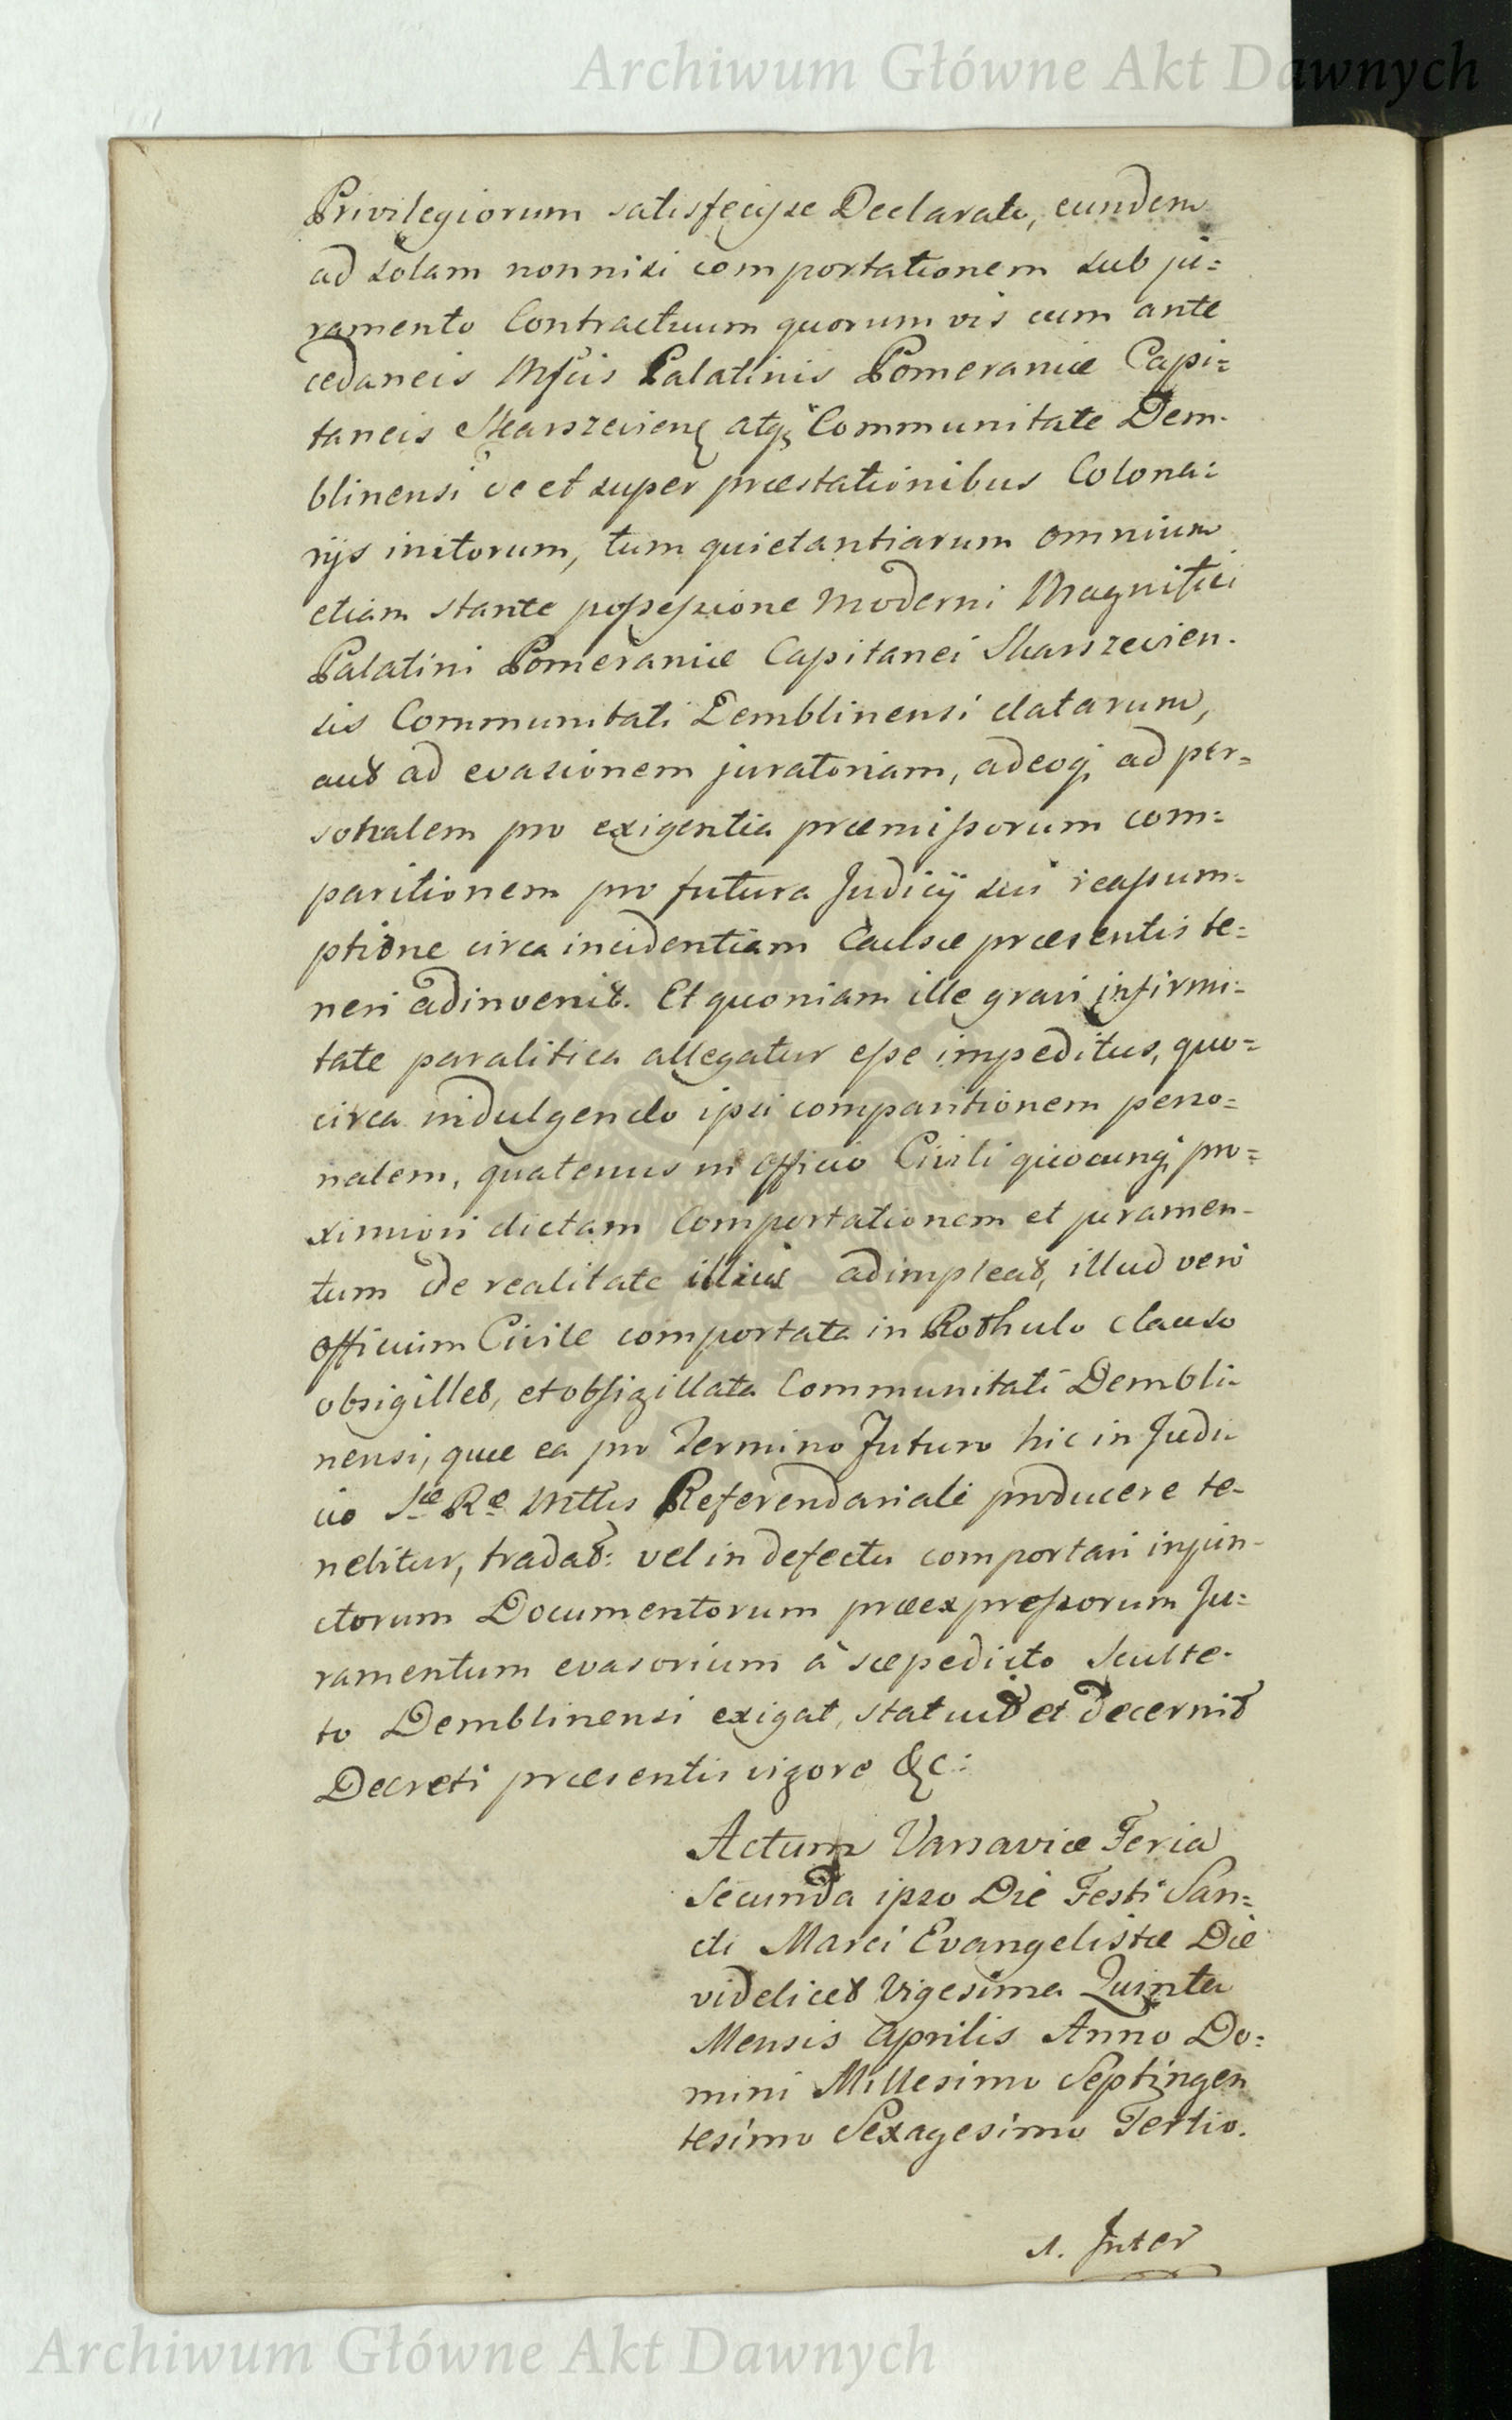 Archiwum Główne Akt Dawnych
Privilegiorum satisfecisse Declarati, eundem
ad solam nonnisi comportationem sub ju=
ramento Contractuum quorumvis cum ante
cedaneis Mfcis Palatinis Pomeraniæ Capi=
taneis Skarszevien atq Communitate Dem-
blinensi de et super præstationibus Colona=
rijs initorum, tum quietantiarum omnium
etiam stante possessione moderni Magnifici
Palatini Pomeraniæ Capitanei Skarszevien-
sis Communitati Demblinensi datarum,
aut ad evasionem juratoriam, adeoq ad per=
sonalem pro exigentia præmissorum com=
paritionem pro futura Judicij sui reassum=
ptione circa incidentiam Causæ præsentis te=
neri adinvenit. Et quoniam ille gravi infirmi=
tate paralitica allegatur esse impeditus, quo=
circa indulgendo ipsi comparitionem perso=
nalem, quatenus in Officio Civili quocunq pro=
ximiori dictam Comportationem et juramen-
tum de realitate illius adimpleat, illud vero
Officium Civile comportata in Rothulo clauso
obsigillet, et obsigillata Communitati Dembli-
nensi, quæ ea pro Termino Futuro hic in Judi-
cio Sæ Ræ Mttis Referendariali producere te-
nebitur, tradat: vel in defectu comportari injun-
ctorum Documentorum præexpressorum Ju=
ramentum evasorium à sæpedicto Sculte-
to Demblinensi exigat, statuit et decernit
Decreti præsentis vigore &c:
Actum Varsaviæ Feria
Secunda ipso Die Festi San=
cti Marci Evangelistæ Die
videlicet Vigesima Quinta
Mensis Aprilis Anno Do=
mini Millesimo Septingen
tesimo Sexagesimo Tertio.
1. Inter
Archiwum Główne Akt Dawnych